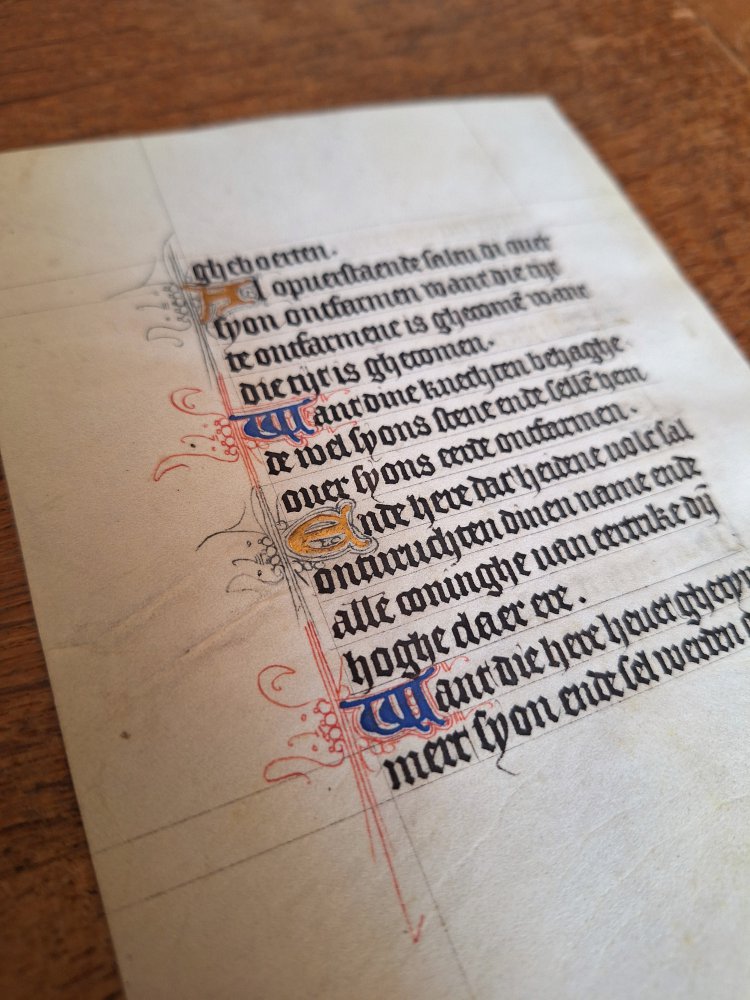 gheboerten.
Al opuerstaende saltu di ouer
syon ontfarmen want die tijt
te ontfarmene is ghecomē want
die tijt is ghecomen.
Want dine knechten behaghe
de wel syons stene ende selsē hem
ouer syons eerde ontfarmen.
Ende here dat heidene uolc sal
onturuchten dinen name ende
alle coninghe uan eertrike dij
hoghe daer ere.
Want die here heuet
merr syon ende sel werden